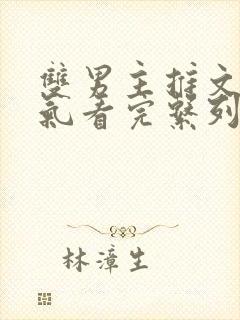 雙男主推文
氣看完繫列
林漳生